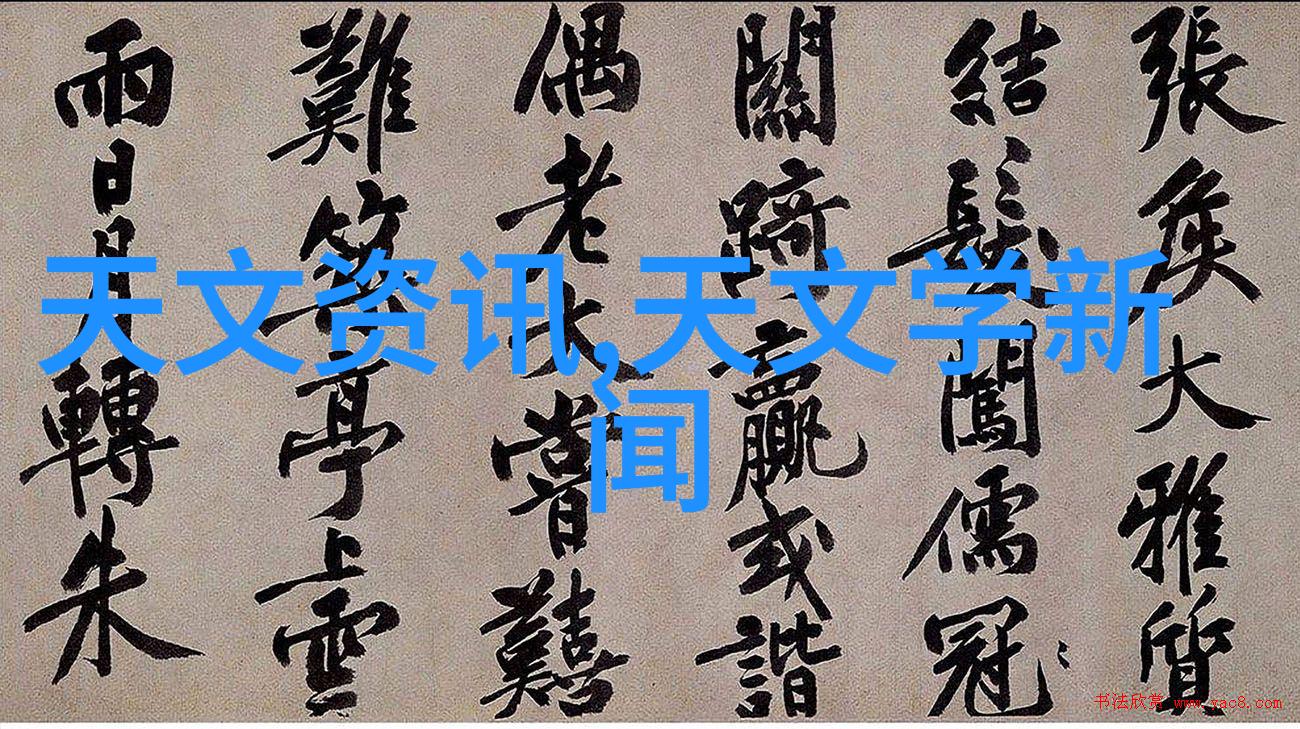 天文资讯,天文学新
闻
張侯大雅質
結髮闖儒冠
關踦贏或諧
偶老大嘗囏
難築亭上雲
雨日月轉朱
书法欣赏 www.yac8.com